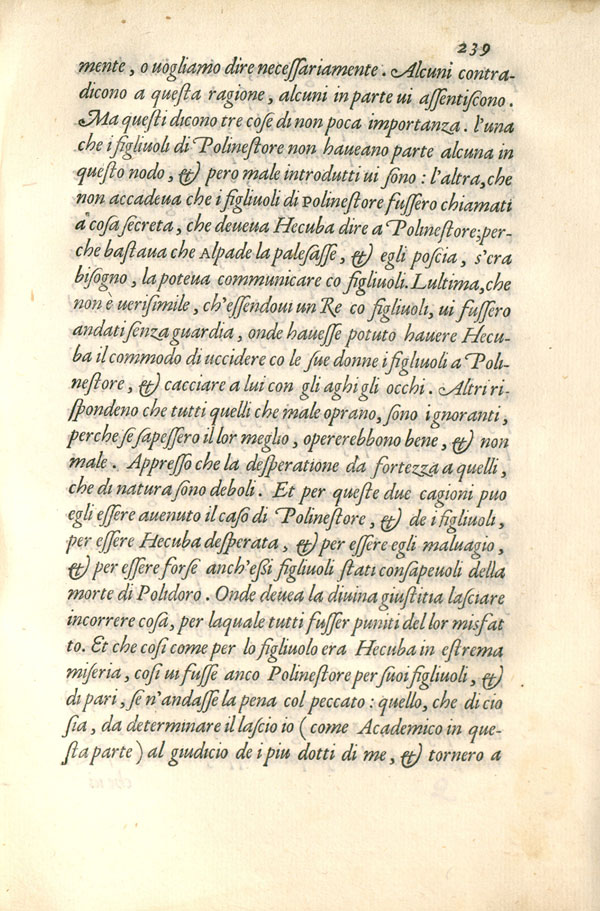 239
mente, o uogliamo dire necessariamente. Alcuni contra-
dicono a questa ragione, alcuni in parte ui assentiscono.
Ma questi dicono tre cose di non poca importanza. l'una
che i figliuoli di Polinestore non haueano parte alcuna in
questo nodo, & pero male introdutti ui sono: l'altra, che
non accadeua che i figliuoli di Polinestore fussero chiamati
à cosa secreta, che deueua Hecuba dire a Polinestore; per-
che bastaua che Alpade la palesasse, & egli poscia, s'era
bisogno, la poteua communicare co figliuoli. Lultima, che
non è uerisimile, ch'essendoui un Re co figliuoli, ui fussero
andati senza guardia, onde hauesse potuto hauere Hecu-
ba il commodo di uccidere co le sue donne i figliuoli a Poli-
nestore, & cacciare a lui con gli aghi gli occhi. Altri ri-
spondeno che tutti quelli che male oprano, sono ignoranti,
perche se sapessero il lor meglio, opererebbono bene, & non
male. Appresso che la desperatione da fortezza a quelli,
che di natura sono deboli. Et per queste due cagioni puo
egli essere auenuto il caso di Polinestore, & de i figliuoli,
per essere Hecuba desperata, & per essere egli maluagio,
& per essere forse anch'eßi figliuoli stati consapeuoli della
morte di Polidoro. Onde deuea la diuina giustitia lasciare
incorrere cosa, per laquale tutti fusser puniti del lor misfat
to. Et che cosi come per lo figliuolo era Hecuba in estrema
miseria, cosi ui fusse anco Polinestore per suoi figliuoli, &
di pari, se n'andasse la pena col peccato: quello, che di cio
sia, da determinare il lascio io (come Academico in que-
sta parte) al giudicio de i piu dotti di me, & tornero a